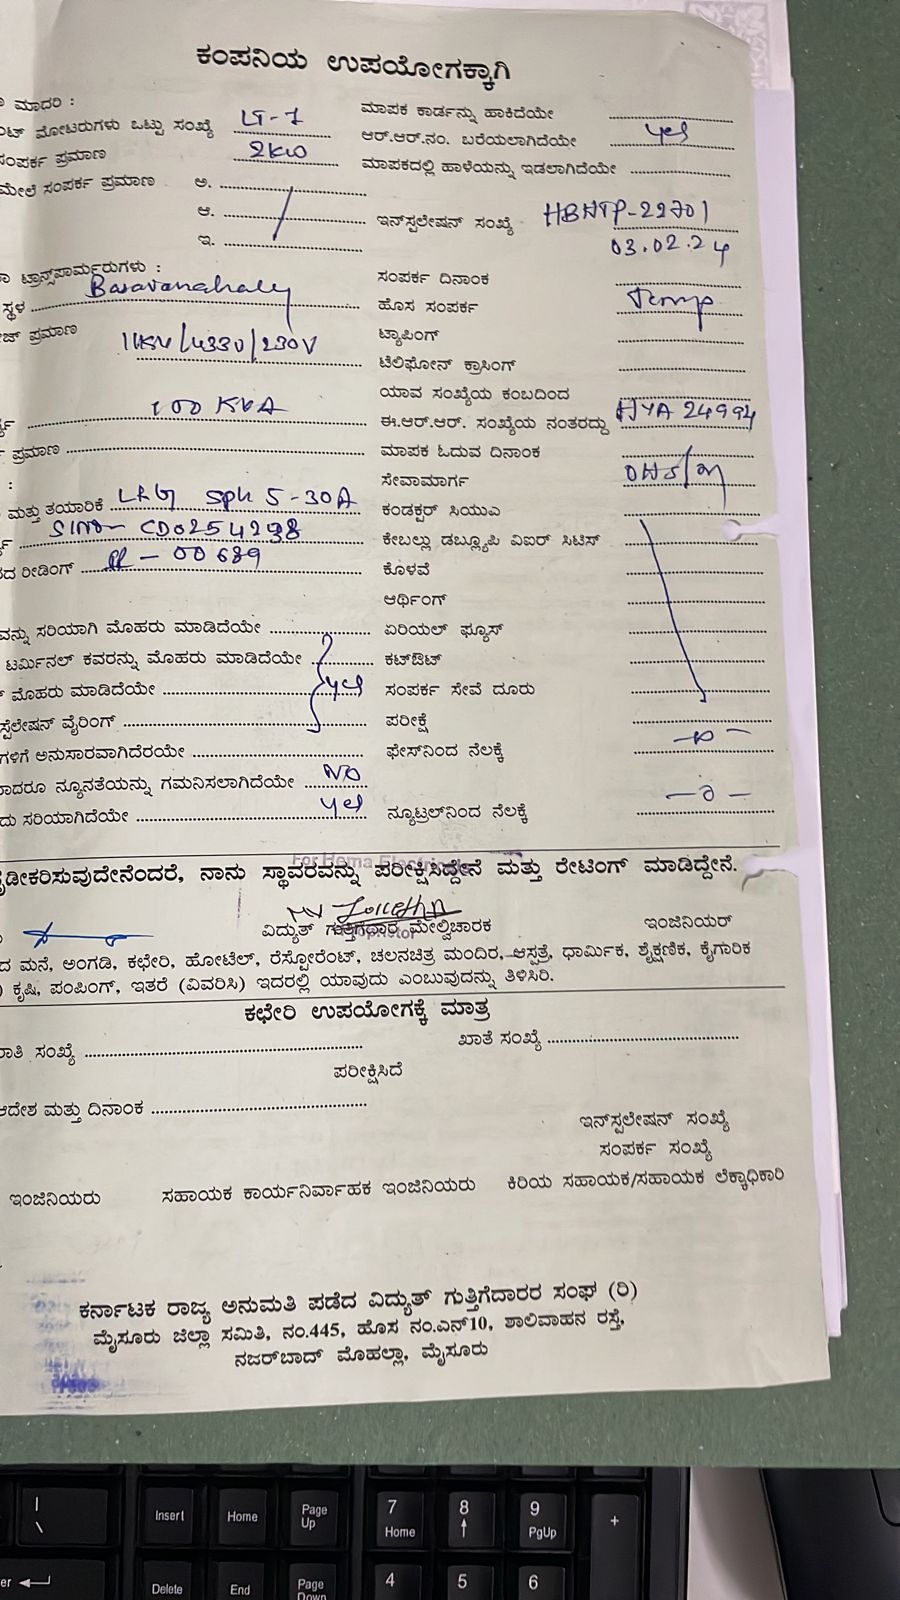 ಕಂಪನಿಯ ಉಪಯೋಗಕ್ಕಾಗಿ
ಮಾದರಿ :
ಮೋಟರುಗಳು ಒಟ್ಟು ಸಂಖ್ಯೆ LT-7
ಸಂಪರ್ಕ ಪ್ರಮಾಣ 2KW
ಮೇಲೆ ಸಂಪರ್ಕ ಪ್ರಮಾಣ ಅ.
ಆ.
ಇ.
ಟ್ರಾನ್ಸ್‌ಪಾರ್ಮರುಗಳು :
ಸ್ಥಳ Basavanahally
ಪ್ರಮಾಣ 11KV/433V/230V
100 KVA
ಪ್ರಮಾಣ
:
ಮತ್ತು ತಯಾರಿಕೆ L&G Sph 5-30A
CD0254298
ರೀಡಿಂಗ್ 00689
ಸರಿಯಾಗಿ ಮೊಹರು ಮಾಡಿದೆಯೇ
ಟರ್ಮಿನಲ್ ಕವರನ್ನು ಮೊಹರು ಮಾಡಿದೆಯೇ
ಮೊಹರು ಮಾಡಿದೆಯೇ yes
ವೈರಿಂಗ್
ಅನುಸಾರವಾಗಿದೆರಯೇ
ನ್ಯೂನತೆಯನ್ನು ಗಮನಿಸಲಾಗಿದೆಯೇ NO
ಸರಿಯಾಗಿದೆಯೇ yes
ಮಾಪಕ ಕಾರ್ಡನ್ನು ಹಾಕಿದೆಯೇ
ಆರ್.ಆರ್.ನಂ. ಬರೆಯಲಾಗಿದೆಯೇ yes
ಮಾಪಕದಲ್ಲಿ ಹಾಳೆಯನ್ನು ಇಡಲಾಗಿದೆಯೇ
ಇನ್‌ಸ್ಟಲೇಷನ್ ಸಂಖ್ಯೆ HBHTP-22701
03.02.24
ಸಂಪರ್ಕ ದಿನಾಂಕ
ಹೊಸ ಸಂಪರ್ಕ Temp
ಟ್ಯಾಪಿಂಗ್
ಟೆಲಿಫೋನ್ ಕ್ರಾಸಿಂಗ್
ಯಾವ ಸಂಖ್ಯೆಯ ಕಂಬದಿಂದ
ಈ.ಆರ್.ಆರ್. ಸಂಖ್ಯೆಯ ನಂತರದ್ದು HYA 24994
ಮಾಪಕ ಓದುವ ದಿನಾಂಕ
ಸೇವಾಮಾರ್ಗ
ಕಂಡಕ್ಟರ್ ಸಿಯುಎ
ಕೇಬಲ್ಲು ಡಬ್ಲ್ಯೂಪಿ ವಿಐರ್ ಸಿಟಿಸ್
ಕೊಳವೆ
ಆರ್ಥಿಂಗ್
ಏರಿಯಲ್ ಫ್ಯೂಸ್
ಕಟ್‌ಔಟ್
ಸಂಪರ್ಕ ಸೇವೆ ದೂರು
ಪರೀಕ್ಷೆ
ಫೇಸ್‌ನಿಂದ ನೆಲಕ್ಕೆ —0—
ನ್ಯೂಟ್ರಲ್‌ನಿಂದ ನೆಲಕ್ಕೆ —0—
For Hema
ನಾನು ಸ್ಥಾವರವನ್ನು ಪರೀಕ್ಷಿಸಿದ್ದೇನೆ ಮತ್ತು ರೇಟಿಂಗ್ ಮಾಡಿದ್ದೇನೆ.
ವಿದ್ಯುತ್ ಗುತ್ತಿಗೆದಾರ ಮೇಲ್ವಿಚಾರಕ ಇಂಜಿನಿಯರ್
ಮನೆ, ಅಂಗಡಿ, ಕಛೇರಿ, ಹೋಟೆಲ್, ರೆಸ್ಟೋರೆಂಟ್, ಚಲನಚಿತ್ರ ಮಂದಿರ, ಆಸ್ಪತ್ರೆ, ಧಾರ್ಮಿಕ, ಶೈಕ್ಷಣಿಕ, ಕೈಗಾರಿಕ
) ಕೃಷಿ, ಪಂಪಿಂಗ್, ಇತರೆ (ವಿವರಿಸಿ) ಇದರಲ್ಲಿ ಯಾವುದು ಎಂಬುವುದನ್ನು ತಿಳಿಸಿರಿ.
ಕಛೇರಿ ಉಪಯೋಗಕ್ಕೆ ಮಾತ್ರ
ಸಂಖ್ಯೆ ಖಾತೆ ಸಂಖ್ಯೆ
ಪರೀಕ್ಷಿಸಿದೆ
ಆದೇಶ ಮತ್ತು ದಿನಾಂಕ
ಇನ್‌ಸ್ಪಲೇಷನ್ ಸಂಖ್ಯೆ
ಸಂಪರ್ಕ ಸಂಖ್ಯೆ
ಇಂಜಿನಿಯರು ಸಹಾಯಕ ಕಾರ್ಯನಿರ್ವಾಹಕ ಇಂಜಿನಿಯರು ಕಿರಿಯ ಸಹಾಯಕ/ಸಹಾಯಕ ಲೆಕ್ಕಾಧಿಕಾರಿ
ಕರ್ನಾಟಕ ರಾಜ್ಯ ಅನುಮತಿ ಪಡೆದ ವಿದ್ಯುತ್ ಗುತ್ತಿಗೆದಾರರ ಸಂಘ (ರಿ)
ಮೈಸೂರು ಜಿಲ್ಲಾ ಸಮಿತಿ, ನಂ.445, ಹೊಸ ನಂ.ಎನ್10, ಶಾಲಿವಾಹನ ರಸ್ತೆ,
ನಜರ್‌ಬಾದ್ ಮೊಹಲ್ಲಾ, ಮೈಸೂರು
|
\
Insert Home Page Up 7 Home 8 9 PgUp +
Delete End Page Down 4 5 6